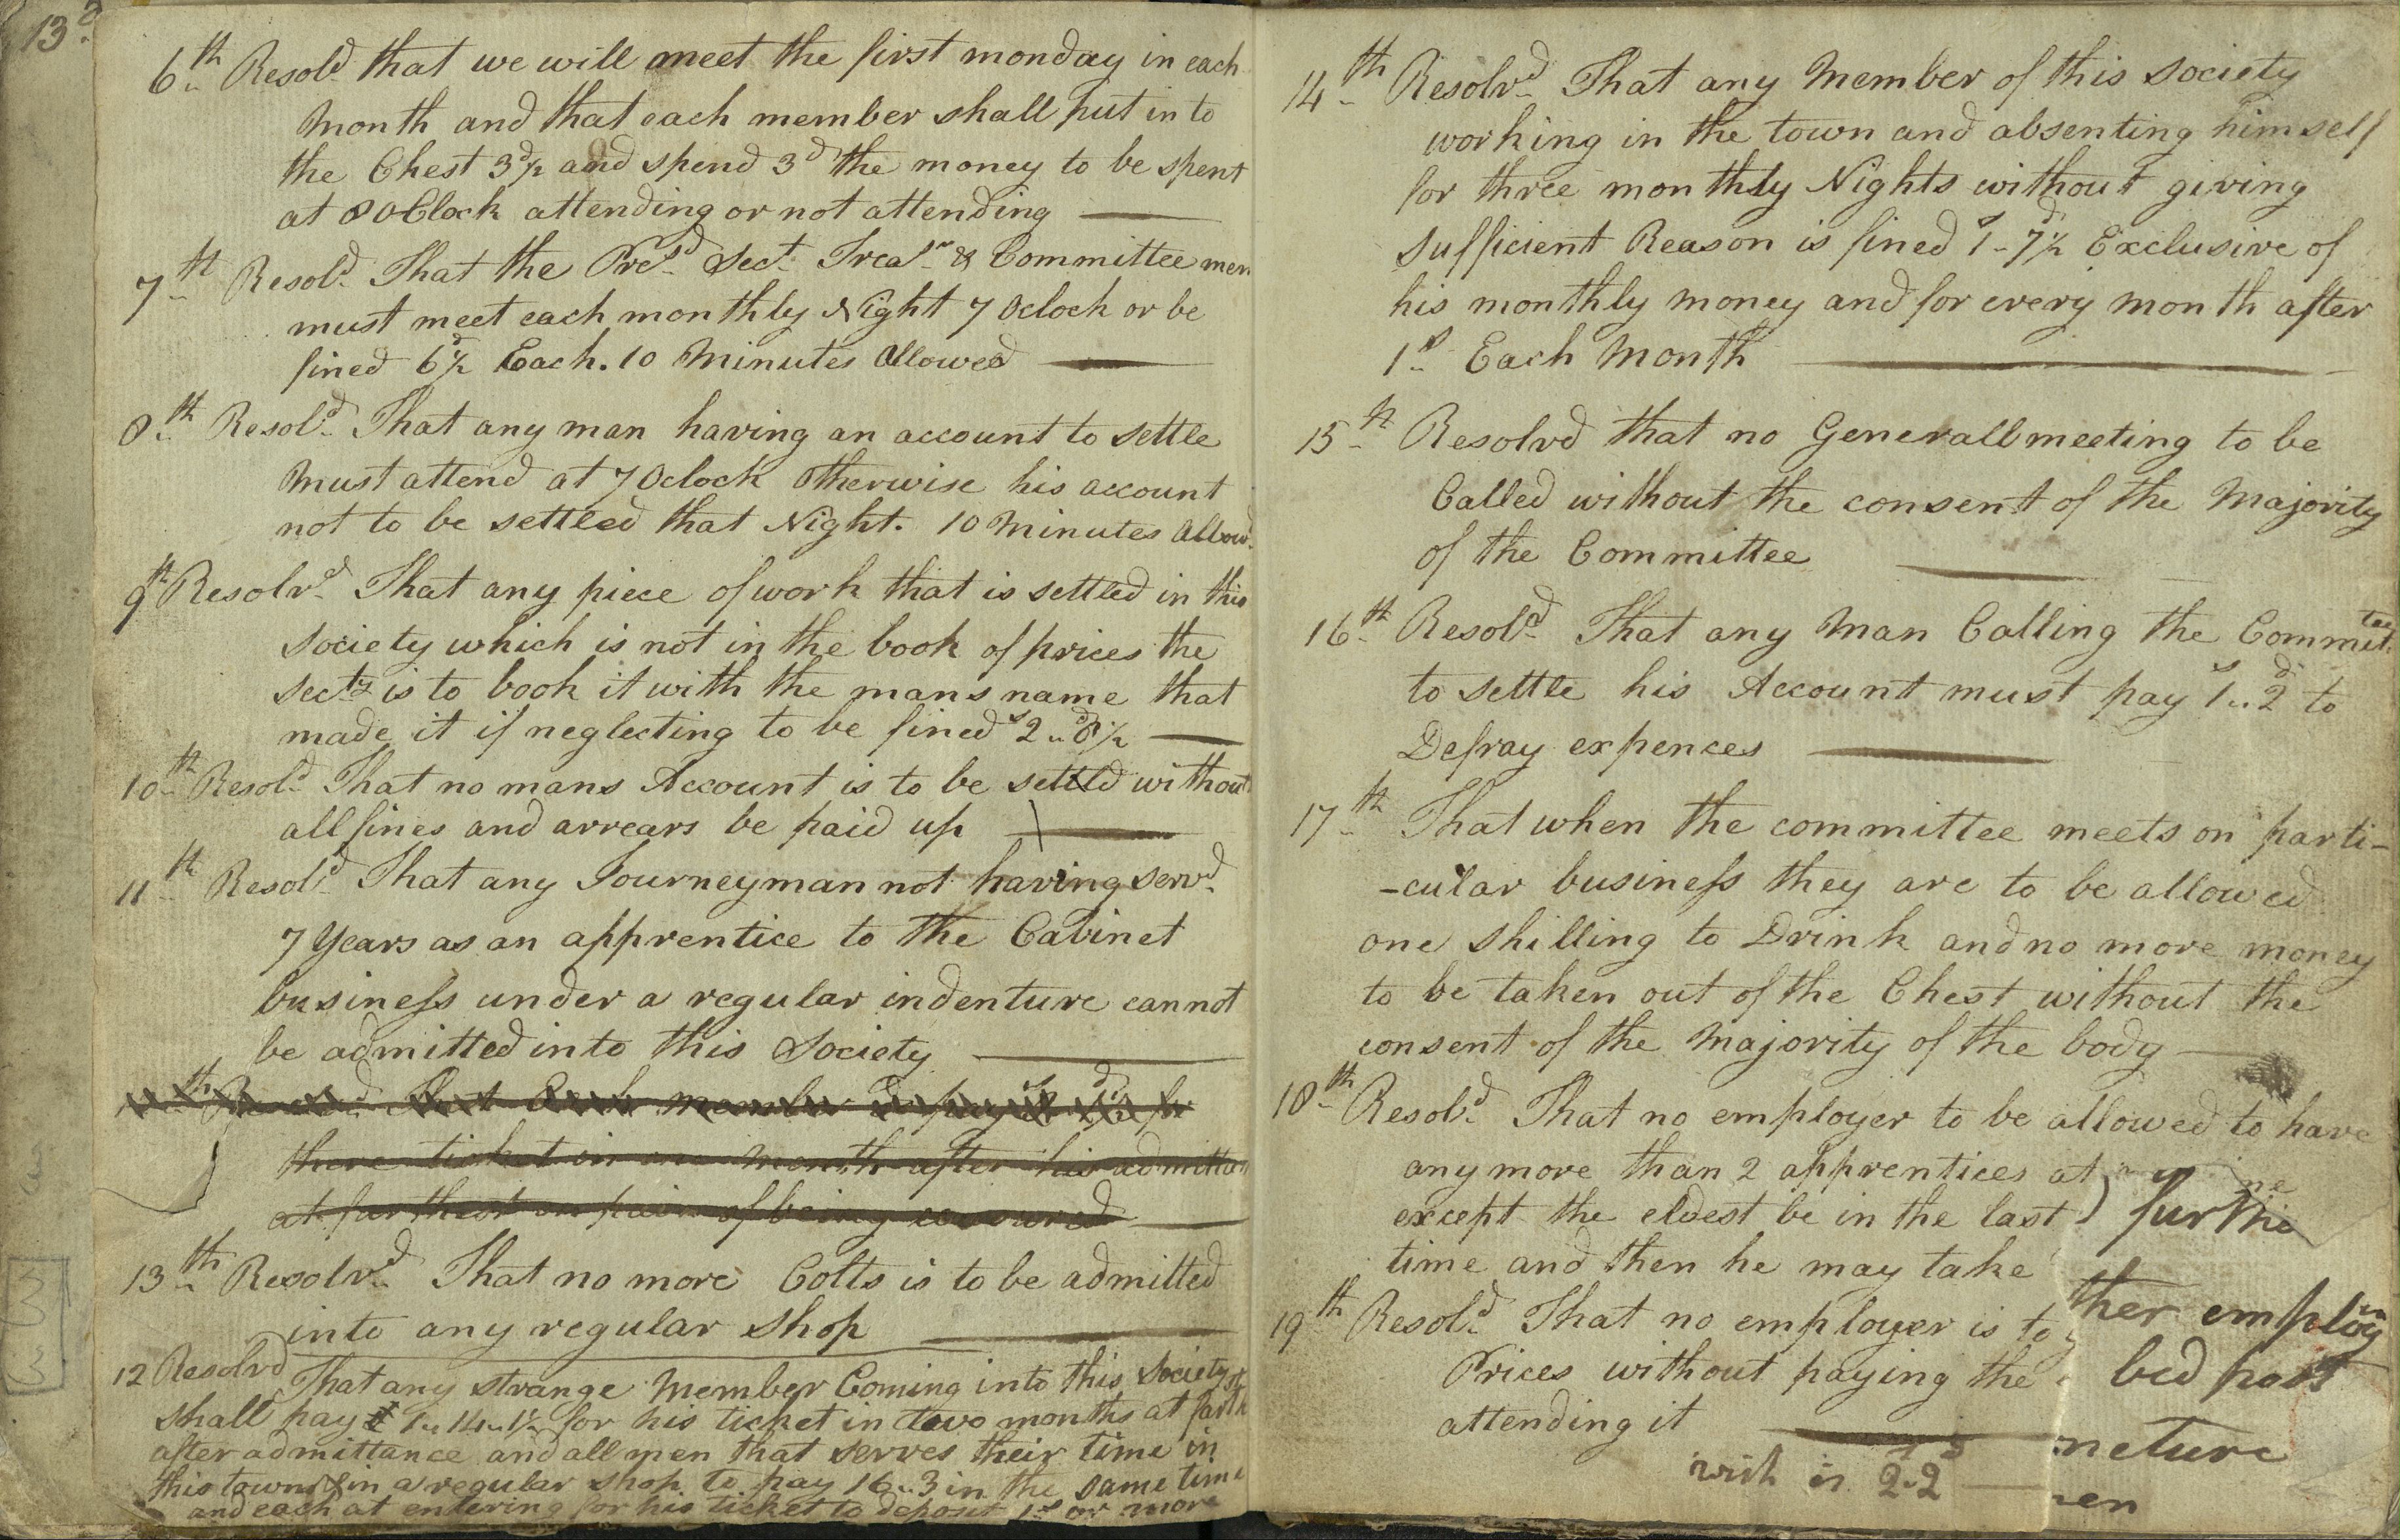 13
6th Resold that we will meet the first monday in each
Month and that each member shall put in to
the Chest 3d½ and spend 3d the money to be spent
at 8 OClock attending or not attending
7th Resold That the Presd Sect Trear & Committee men
must meet each monthly Night 7 Oclock or be
fined 6d½ Each. 10 Minutes Allowed
8th Resold That any man having an account to settle
Must attend at 7 Oclock Otherwise his account
not to be settled that Night. 10 Minutes Allowd
9th Resolvd That any piece of work that is settled in this
Society which is not in the book of prices the
Secty is to book it with the mans name that
made it if neglecting to be fined s2 „ d8½
10th Resold That no mans Account is to be settld without
all fines and arrears be paid up
11th Resold That any Journeyman not having servd
7 Years as an apprentice to the Cabinet
business under a regular indenture cannot
be admitted into this Society
That Each member to pay for
there ticket in one Month after his admitta
at furthest on pain of being
13th Resolvd That no more Colts is to be admitted
into any regular Shop
12 Resolvd That any strange Member Coming into this Society
Shall pay 1 „ 14 „ 1½ for his ticket in two months at farth
after admittance and all men that serves their time in
this town & in a regular shop to pay 16 „ 3 in the same time
and each at entering for his ticket to deposit 1s or more
14th Resolvd That any Member of this Society
working in the town and absenting himself
for three monthly Nights without giving
Sufficient Reason is fined s1 - d7½ Exclusive of
his monthly money and for every month after
1s Each Month
15th Resolvd that no Generall meeting to be
Called without the consent of the Majority
of the Committee
16th Resold That any Man Calling the Committee
to settle his Account must pay s1 „ d2 to
Defray expences
17th That when the committee meets on parti-
-cular business they are to be allowed
one Shilling to Drink and no more money
to be taken out of the Chest without the
consent of the Majority of the body
18th Resold That no employer to be allowed to have
any more than 2 apprentices at
except the eldest be in the last
time and then he may take
19th Resold That no employer is to
Prices without paying the
attending it
wich is 2 - 2
ne
further
ther employ
bed post
neture
en